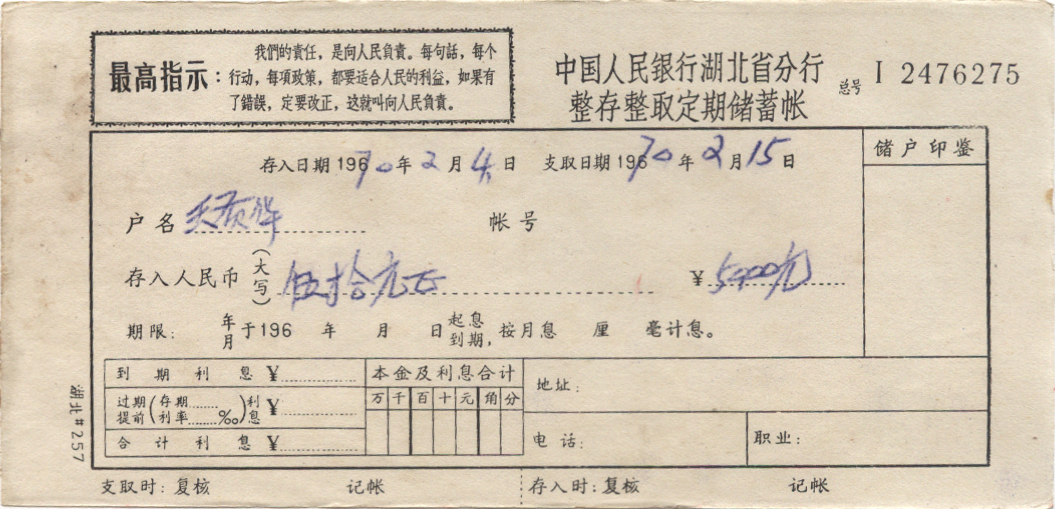 最高指示:
我們的責任，是向人民負責。每句話，每个
行动，每項政策，都要适合人民的利益，如果有
了錯誤，定要改正，这就叫向人民負責。
中国人民銀行湖北省分行
整存整取定期储蓄帐
总号 I 2476275
存入日期 196 70年2月4日 支取日期 196 70年2月15日
储户印鉴
户名 帐号
存入人民币(大写) 伍拾元 ¥5000元
期限: 年月 于196 年 月 日 起息到期, 按月息 厘 毫计息。
到期利息 ¥
过期提前(存期 利率 ‰)利息 ¥
合计利息 ¥
本金及利息合计
万 千 百 十 元 角 分
地址:
电话: 职业:
湖北#257
支取时: 复核 记帐 存入时: 复核 记帐